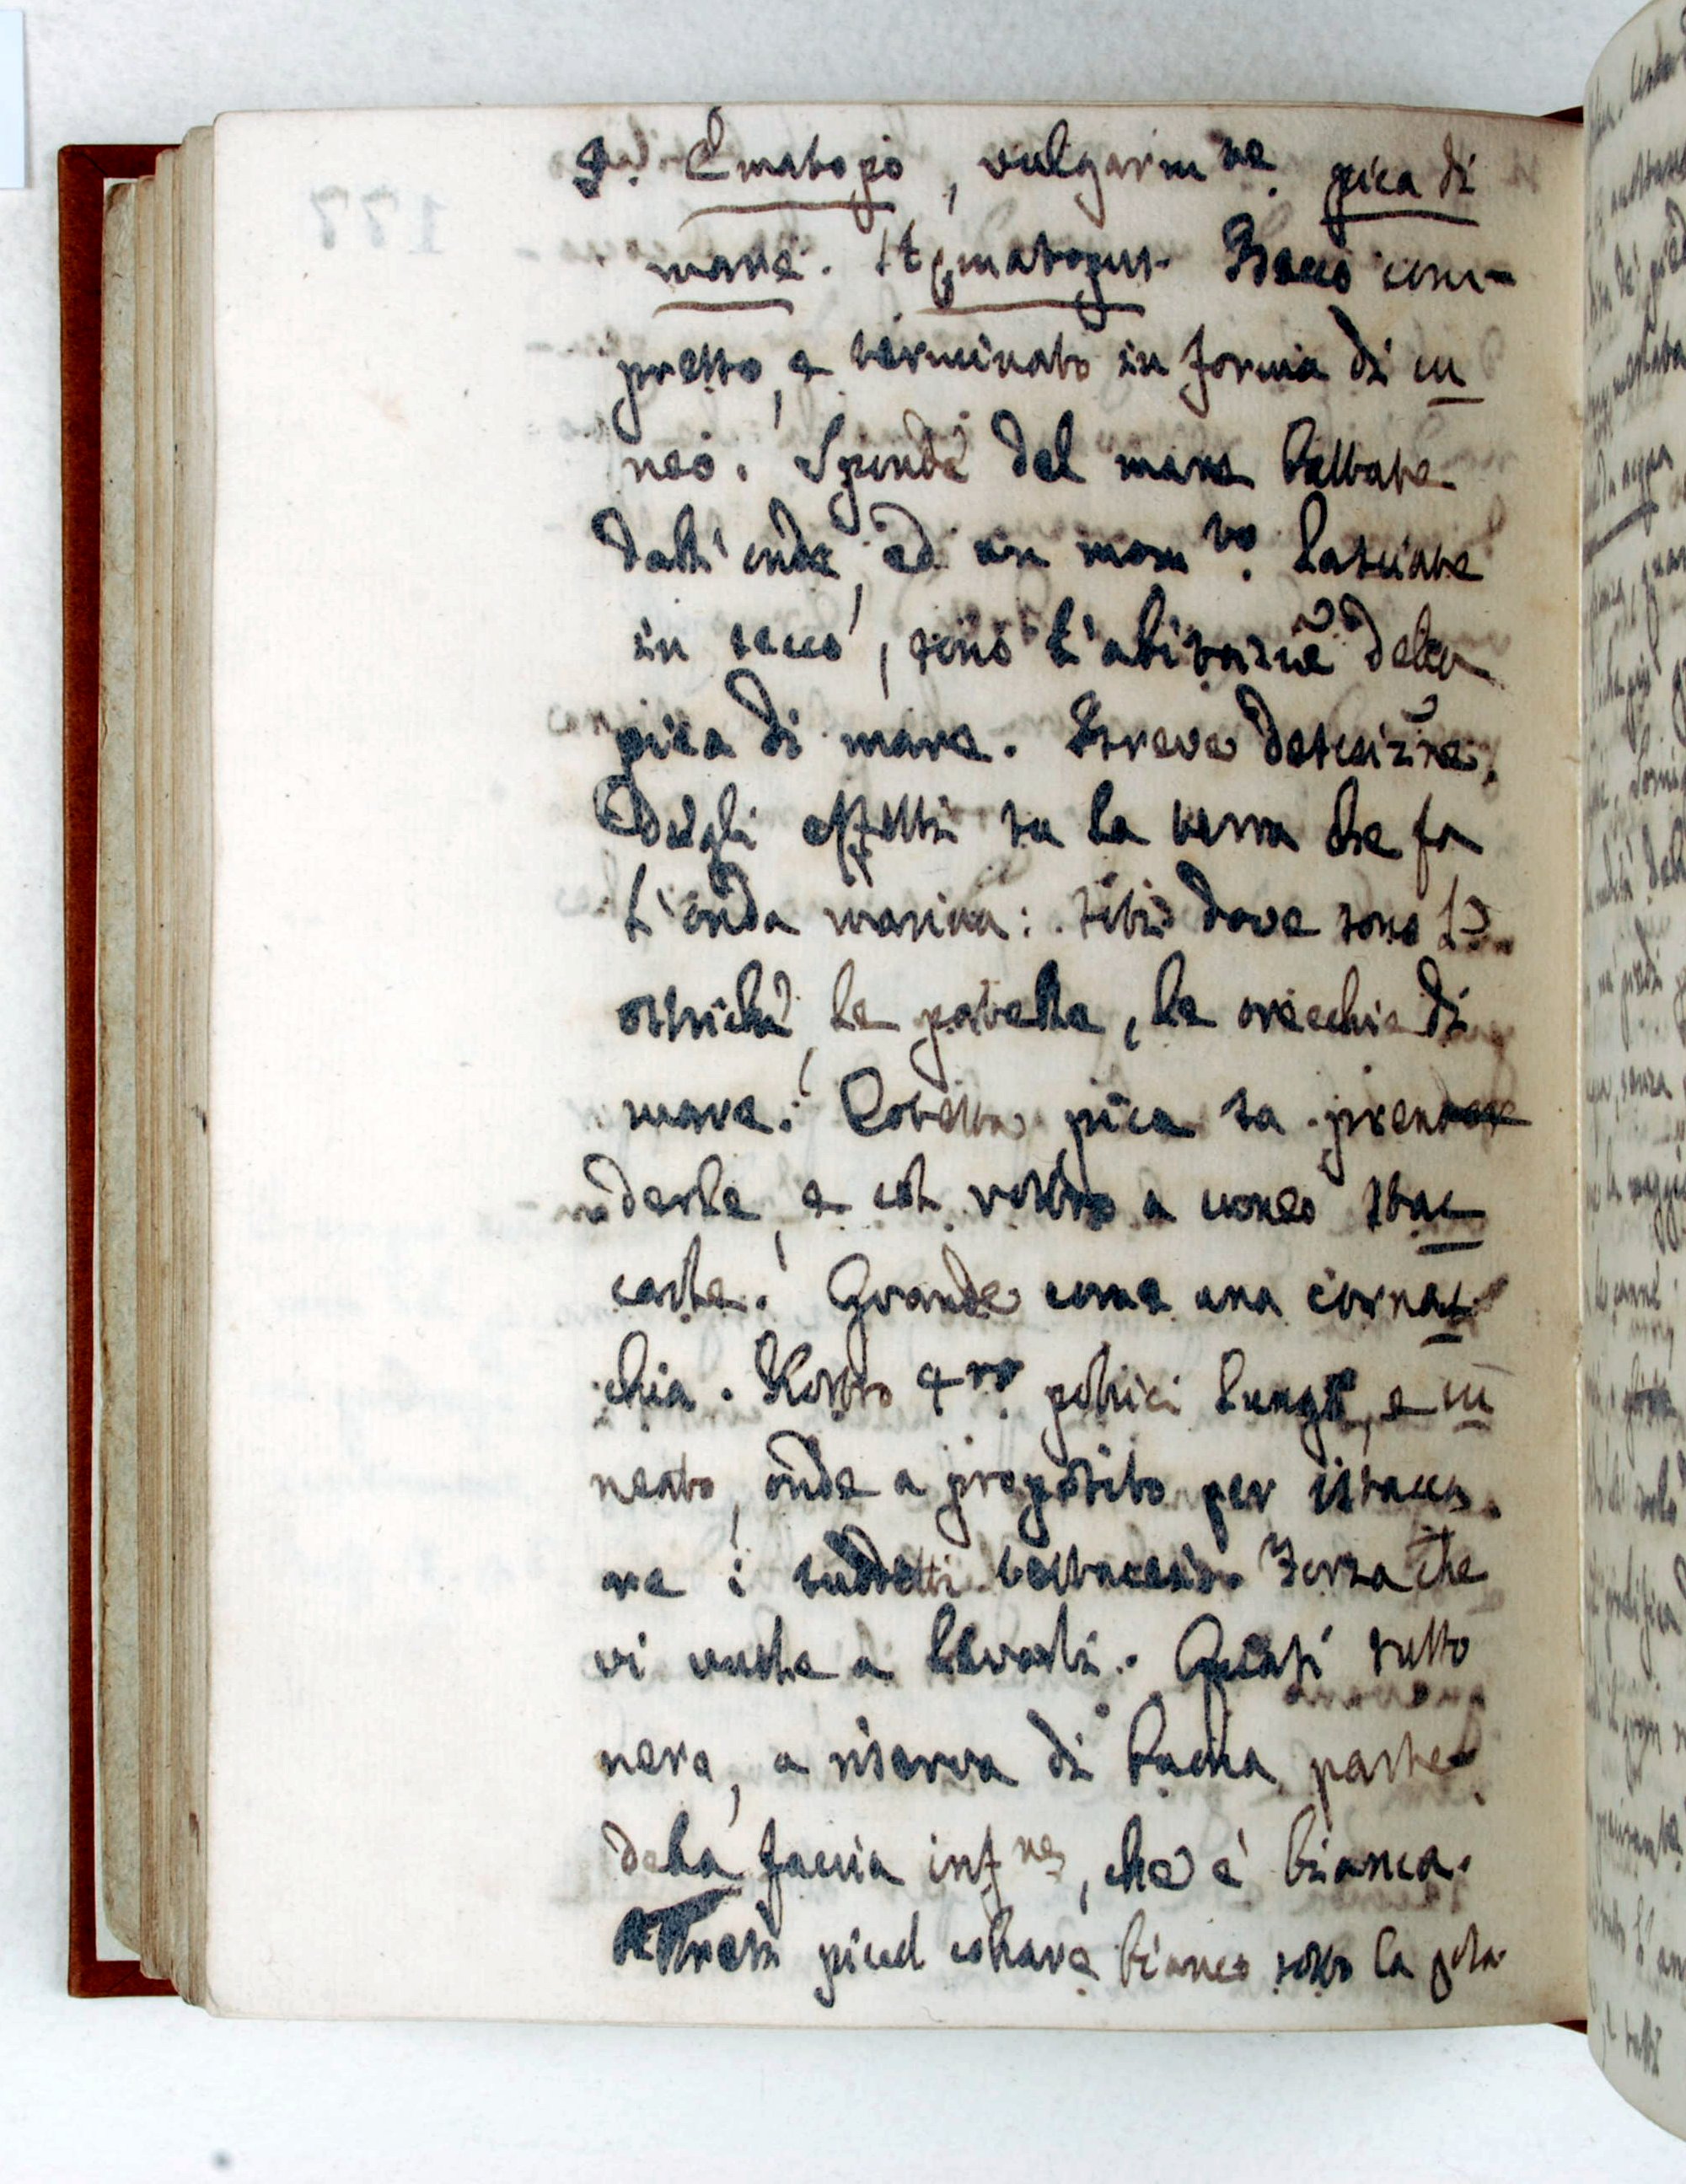 9. Ematopo, vulgarm.te pica di
mare. Hematopus. Becco com-
presso, e terminato in forma di cu
neo. Sponde del mare battute
dall'onde, ed un mom.to lasciate
in secco, sono l'abitazione della
pica di mare. Breve descrizne
degli effetti su la terra che fa
l'onda marina: siti dove sono l'
ostriche, le patelle, le orecchie di
mare. Cotesta pica sa pren
derle, e col rostro a cuneo stac
carle. Grande come una cornac
chia. Rostro 4.ro pollici lungo, e cu
neato, onde a proposito per istacca
re i suddetti testacei. Forza che
vi vuole a levarli. Quasi tutto
nera, a riserva di buona parte
della faccia inf.re, che è bianca.
piccol collare bianco sotto la gola